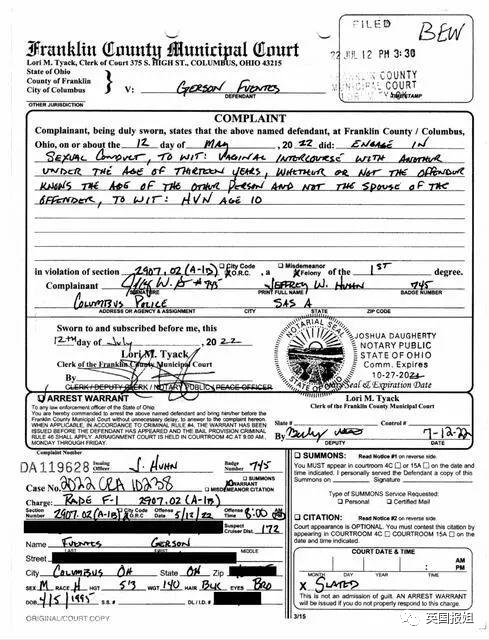 FILED
BEW
22 JUL 12 PM 3:30
Franklin County Municipal Court
Lori M. Tyack, Clerk of Court 375 S. HIGH ST., COLUMBUS, OHIO 43215
State of Ohio
County of Franklin
City of Columbus
V: GERSON FUENTES
DEFENDANT
OTHER JURISDICTION
COMPLAINT
Complainant, being duly sworn, states that the above named defendant, at Franklin County / Columbus,
Ohio, on or about the 12 day of MAY, 2022 did: ENGAGE IN
SEXUAL CONDUCT, TO WIT: VAGINAL INTERCOURSE WITH ANOTHER
UNDER THE AGE OF THIRTEEN YEARS, WHETHER OR NOT THE OFFENDER
KNOWS THE AGE OF THE OTHER PERSON AND NOT THE SPOUSE OF THE
OFFENDER, TO WIT: HVN AGE 10
in violation of section 2907.02 (A-1B) City Code O.R.C., a Misdemeanor Felony of the 1ST degree.
Complainant JEFFREY W. HUHN 745
SIGNATURE PRINT FULL NAME BADGE NUMBER
COLUMBUS POLICE SAS A
ADDRESS OR AGENCY & ASSIGNMENT CITY STATE ZIP CODE
Sworn to and subscribed before me, this
12TH day of July, 2022
Lori M. Tyack
Clerk of the Franklin County Municipal Court
By
CLERK / DEPUTY CLERK / NOTARY PUBLIC / PEACE OFFICER
NOTARIAL SEAL
STATE OF OHIO
JOSHUA DAUGHERTY
NOTARY PUBLIC
STATE OF OHIO
Comm. Expires
10-27-2021
Seal & Expiration Date
ARREST WARRANT
To any law enforcement officer of the State of Ohio:
You are hereby commanded to arrest the above named defendant and bring him/her before the
Franklin County Municipal Court without unnecessary delay, to answer to the complaint hereon.
WHEN APPLICABLE, IN ACCORDANCE TO CRIMINAL RULE #4, THE WARRANT HAS BEEN
ISSUED BEFORE THE DEFENDANT HAS APPEARED AND THE BAIL PROVISION CRIMINAL
RULE 46 SHALL APPLY. ARRAIGNMENT COURT IS HELD IN COURTROOM 4C AT 9:00 AM,
MONDAY THROUGH FRIDAY.
Lori M. Tyack
Clerk of the Franklin County Municipal Court
Slate # Control #
By 7-12-22
DEPUTY DATE
Complaint Number
DA119628 Issuing Officer J. HUHN Badge Number 745
Case No. 2022 CRA 10238 SUMMONS WARRANT MISDEMEANOR CITATION
Charge: RAPE F-1 2907.02 (A-1B)
Section Number 2907.02 (A-1B) City Code O.R.C Offense Date 5/12/22 Offense Time 8:00
Suspect Cruiser Dist. 172
Name FUENTES GERSON
LAST FIRST MIDDLE
Street
City COLUMBUS OH State OH Zip
SEX M RACE H HGT 5'3 WGT 140 HAIR BLK EYES BRO
DOB 4/5/1995 S.S. # DL / I.D. #
ORIGINAL/COURT COPY
SUMMONS: Read Notice #1 on reverse side.
You MUST appear in courtroom 4C or 15A on the date and time
indicated. I personally served the Defendant a copy of this
Summons on Signature
Type of SUMMONS Service Requested:
Personal Certified Mail
CITATION: Read Notice #2 on reverse side.
Court appearance is OPTIONAL. You must contest this citation by
appearing in COURTROOM 4C COURTROOM 15A on the
date and time indicated.
COURT DATE & TIME
AM
PM
MONTH DAY YEAR TIME
X SLATED
This is not an admission of guilt. AN ARREST WARRANT
will be issued if you do not properly respond to this charge.
3/15
英国报姐